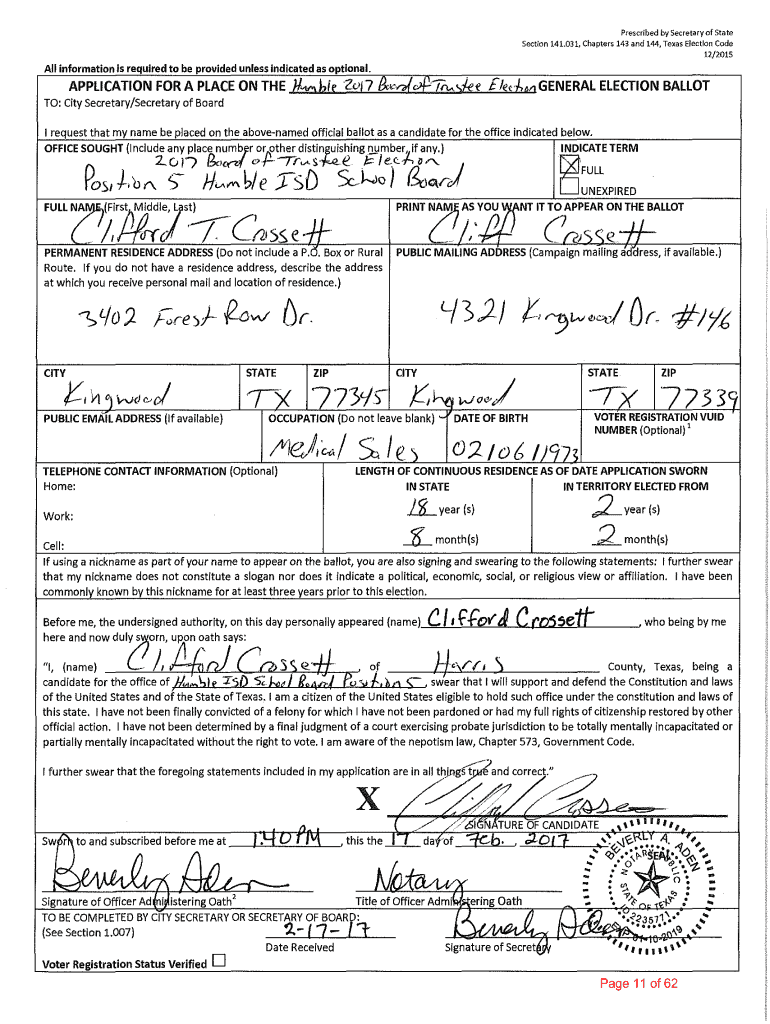 Prescribed by Secretary of State
Section 141.031, Chapters 143 and 144, Texas Election Code
12/2015
All information is required to be provided unless indicated as optional.
APPLICATION FOR A PLACE ON THE Humble 2017 Board of Trustee Election GENERAL ELECTION BALLOT
TO: City Secretary/Secretary of Board
I request that my name be placed on the above-named official ballot as a candidate for the office indicated below.
OFFICE SOUGHT (Include any place number or other distinguishing number, if any.) INDICATE TERM
2017 Board of Trustee Election
Position 5 Humble ISD School Board
X FULL
UNEXPIRED
FULL NAME (First, Middle, Last) PRINT NAME AS YOU WANT IT TO APPEAR ON THE BALLOT
Clifford T. Crossett Cliff Crossett
PERMANENT RESIDENCE ADDRESS (Do not include a P.O. Box or Rural PUBLIC MAILING ADDRESS (Campaign mailing address, if available.)
Route. If you do not have a residence address, describe the address
at which you receive personal mail and location of residence.)
3402 Forest Row Dr. 4321 Kingwood Dr. #146
CITY STATE ZIP CITY STATE ZIP
Kingwood TX 77345 Kingwood TX 77339
PUBLIC EMAIL ADDRESS (If available) OCCUPATION (Do not leave blank) DATE OF BIRTH VOTER REGISTRATION VUID
NUMBER (Optional)1
Medical Sales 02/06/1973
TELEPHONE CONTACT INFORMATION (Optional) LENGTH OF CONTINUOUS RESIDENCE AS OF DATE APPLICATION SWORN
Home: IN STATE IN TERRITORY ELECTED FROM
18 year (s) 2 year (s)
Work:
8 month(s) 2 month(s)
Cell:
If using a nickname as part of your name to appear on the ballot, you are also signing and swearing to the following statements: I further swear
that my nickname does not constitute a slogan nor does it indicate a political, economic, social, or religious view or affiliation. I have been
commonly known by this nickname for at least three years prior to this election.
Before me, the undersigned authority, on this day personally appeared (name) Clifford Crossett, who being by me
here and now duly sworn, upon oath says:
"I, (name) Clifford Crossett, of Harris County, Texas, being a
candidate for the office of Humble ISD School Board Position 5, swear that I will support and defend the Constitution and laws
of the United States and of the State of Texas. I am a citizen of the United States eligible to hold such office under the constitution and laws of
this state. I have not been finally convicted of a felony for which I have not been pardoned or had my full rights of citizenship restored by other
official action. I have not been determined by a final judgment of a court exercising probate jurisdiction to be totally mentally incapacitated or
partially mentally incapacitated without the right to vote. I am aware of the nepotism law, Chapter 573, Government Code.
I further swear that the foregoing statements included in my application are in all things true and correct."
X Clifford Crossett
SIGNATURE OF CANDIDATE
Sworn to and subscribed before me at 1:40 PM, this the 17 day of Feb., 2017
BEVERLY A. ADEN
NOTARY PUBLIC
SEAL
STATE OF TEXAS
ID 2235771
01-10-2019
Beverly Aden Notary
Signature of Officer Administering Oath2 Title of Officer Administering Oath
TO BE COMPLETED BY CITY SECRETARY OR SECRETARY OF BOARD:
(See Section 1.007) 2-17-17 Beverly Aden
Date Received Signature of Secretary
Voter Registration Status Verified
Page 11 of 62